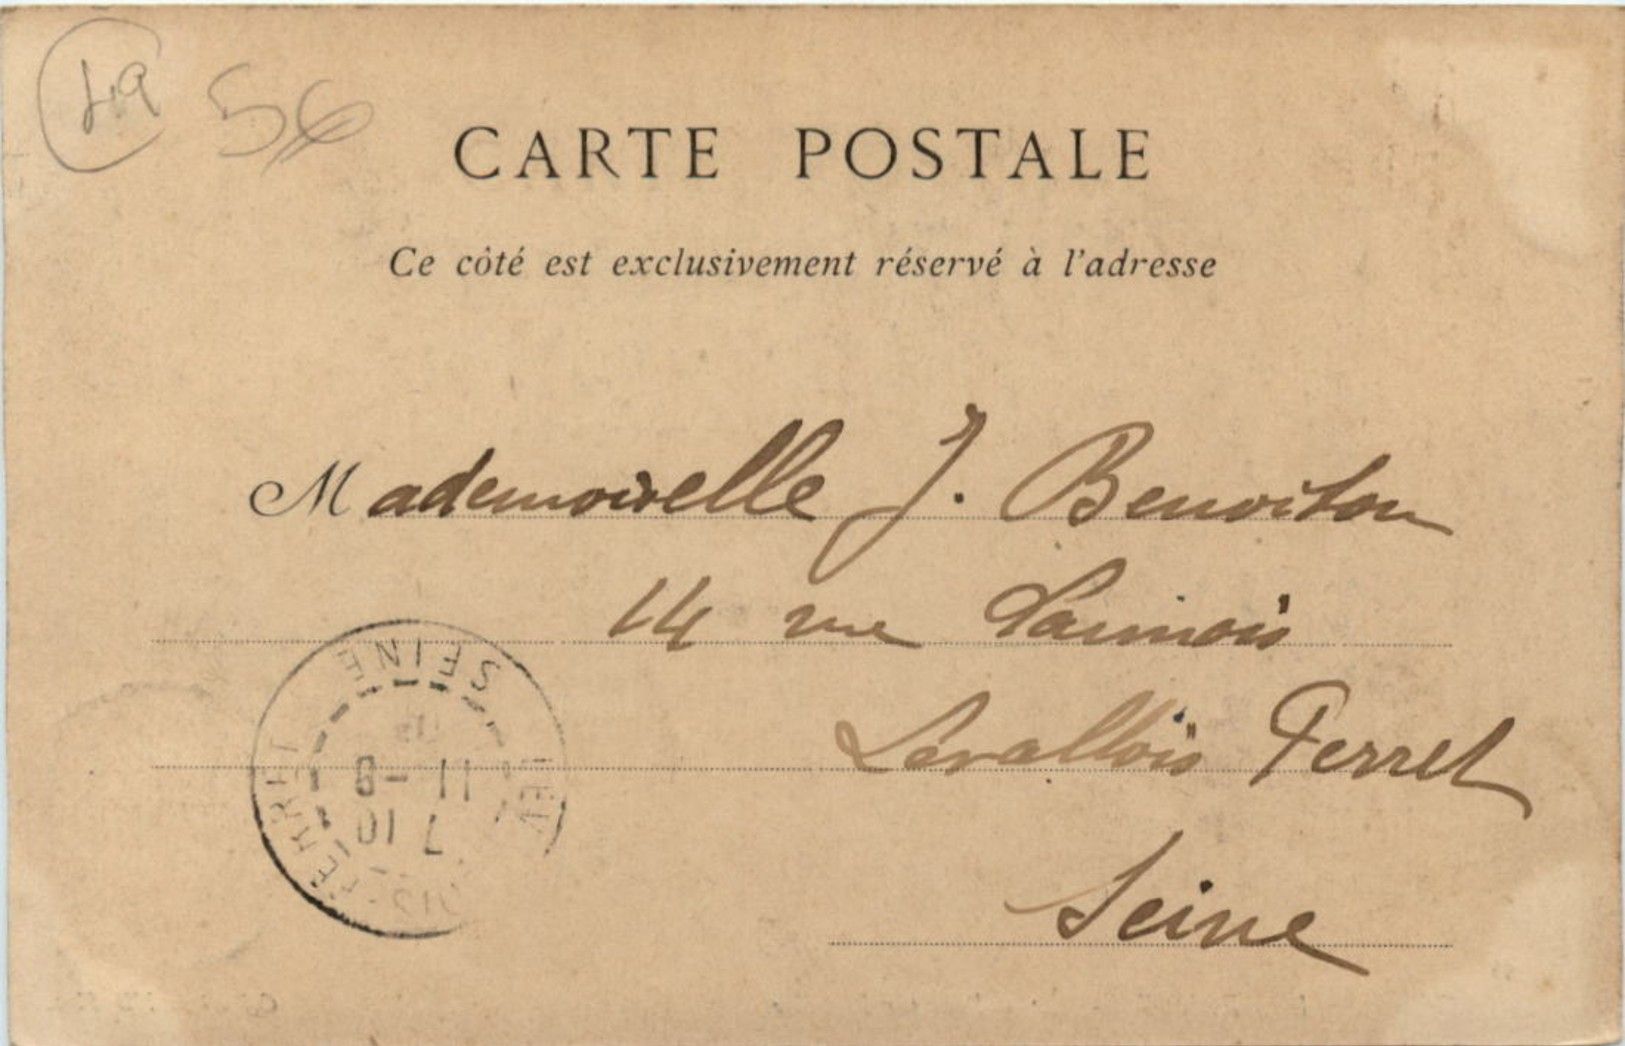 49 56
CARTE POSTALE
Ce côté est exclusivement réservé à l'adresse
Mademoiselle J. Benoiton
14 rue Lannois
Levallois Perret
Seine
SEINE
11-9
7 10
PERRET